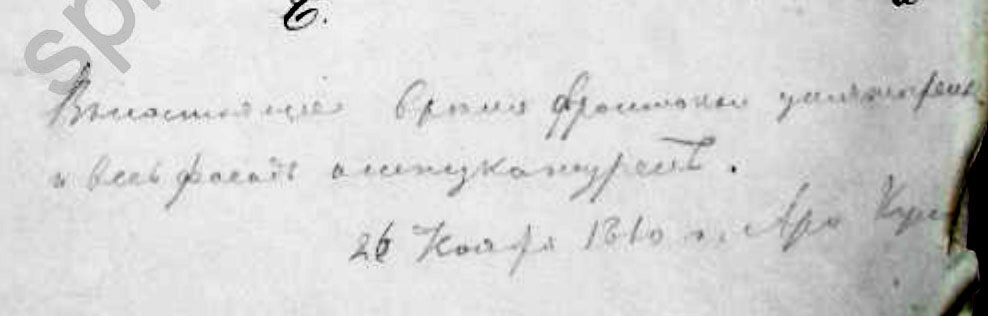 С.
Внастоящее время фронтонъ уничтоженъ
и весь фасадъ оштукатуренъ.
26 Ноября г. Арх